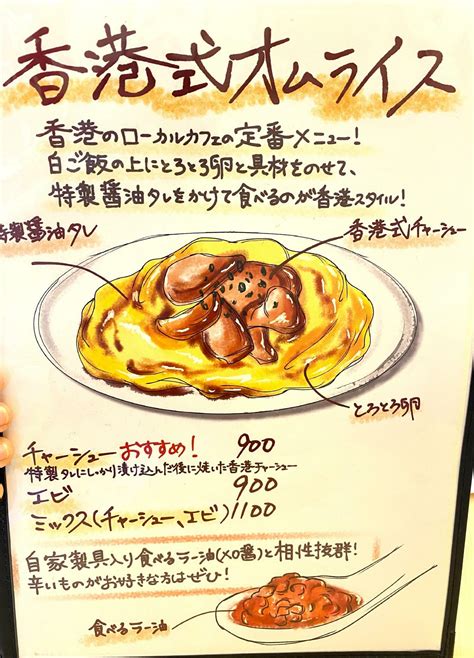 香港式オムライス
香港のローカルカフェの定番メニュー!
白ご飯の上にとろとろ卵と具材をのせて、
特製醤油タレをかけて食べるのが香港スタイル!
特製醤油タレ
香港式チャーシュー
とろとろ卵
チャーシュー おすすめ! 900
特製タレにしっかり漬け込んだ後に焼いた香港チャーシュー
エビ 900
ミックス(チャーシュー、エビ) 1100
自家製具入り食べるラー油(XO醤)と相性抜群!
辛いものがお好きな方はぜひ!
食べるラー油